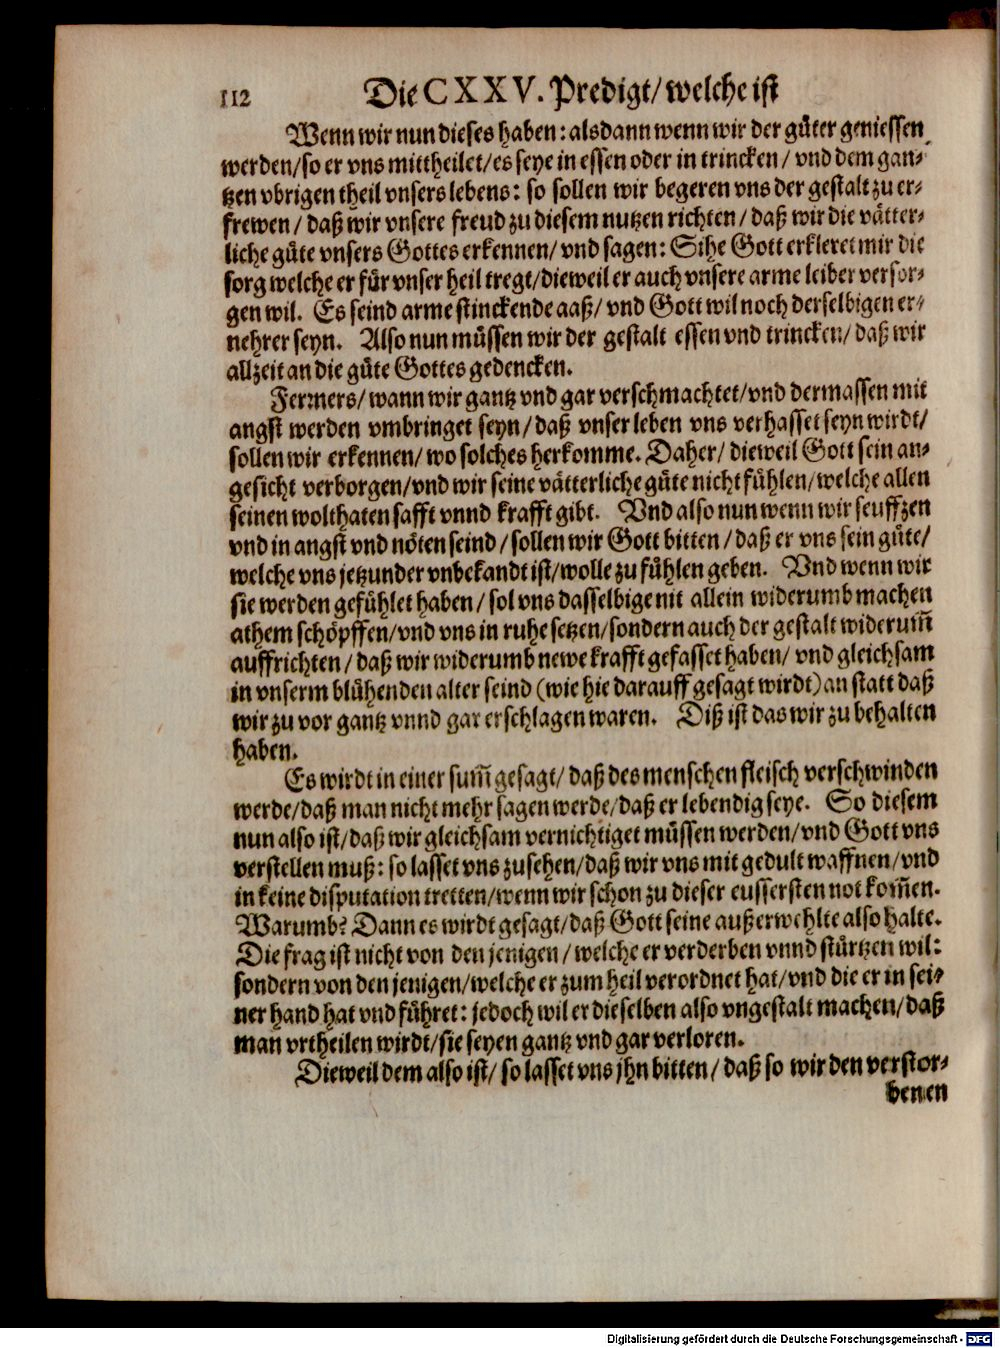 112 Die CXXV. Predigt/ welche ist
Wenn wir nun dieses haben: alsdann wenn wir der güter geniessen
werden/ so er vns mittheilet/ es seye in essen oder in trincken/ vnd dem gan-
tzen vbrigen theil vnsers lebens: so sollen wir begeren vns der gestalt zu er-
frewen/ daß wir vnsere freud zu diesem nutzen richten/ daß wir die vätter-
liche güte vnsers Gottes erkennen/ vnd sagen: Sihe Gott erkleret mir die
sorg welche er für vnser heil tregt/ dieweil er auch vnsere arme leiber versor-
gen wil. Es seind arme stinckende aaß/ vnd Gott wil noch derselbigen er-
nehrer seyn. Also nun müssen wir der gestalt essen vnd trincken/ daß wir
allzeit an die güte Gottes gedencken.
Fernners/ wann wir gantz vnd gar verschmachtet/ vnd dermassen mit
angst werden vmbringet seyn/ daß vnser leben vns verhasset seyn wirdt/
sollen wir erkennen/ wo solches herkomme. Daher/ dieweil Gott sein an-
gesicht verborgen/ vnd wir seine vätterliche güte nicht fühlen/ welche allen
seinen wolthaten safft vnnd krafft gibt. Vnd also nun wenn wir seuffzen
vnd in angst vnd nöten seind/ sollen wir Gott bitten/ daß er vns sein güte/
welche vns jetzunder vnbekandt ist/ wolle zu fühlen geben. Vnd wenn wir
sie werden gefühlet haben/ sol vns dasselbige nit allein widerumb machen
athem schöpffen/ vnd vns in ruhe setzen/ sondern auch der gestalt widerum̃
auffrichten/ daß wir widerumb newe krafft gefasset haben/ vnd gleichsam
in vnserm blühenden alter seind (wie hie darauff gesagt wirdt) an statt daß
wir zu vor gantz vnnd gar erschlagen waren. Diß ist das wir zu behalten
haben.
Es wirdt in einer sum̃ gesagt/ daß des menschen fleisch verschwinden
werde/ daß man nicht mehr sagen werde/ daß er lebendig seye. So diesem
nun also ist/ daß wir gleichsam vernichtiget müssen werden/ vnd Gott vns
verstellen muß: so lasset vns zusehen/ daß wir vns mit gedult waffnen/ vnd
in keine disputation tretten/ wenn wir schon zu dieser eussersten not kom̃en.
Warumb? Dann es wirdt gesagt/ daß Gott seine außerwehlte also halte.
Die frag ist nicht von den jenigen/ welche er verderben vnnd stürtzen wil:
sondern von den jenigen/ welche er zum heil verordnet hat/ vnd die er in sei-
ner hand hat vnd führet: jedoch wil er dieselben also vngestalt machen/ daß
man vrtheilen wirdt/ sie seyen gantz vnd gar verloren.
Dieweil dem also ist/ so lasset vns jhn bitten/ daß so wir den verstor-
benen
Digitalisierung gefördert durch die Deutsche Forschungsgemeinschaft - DFG